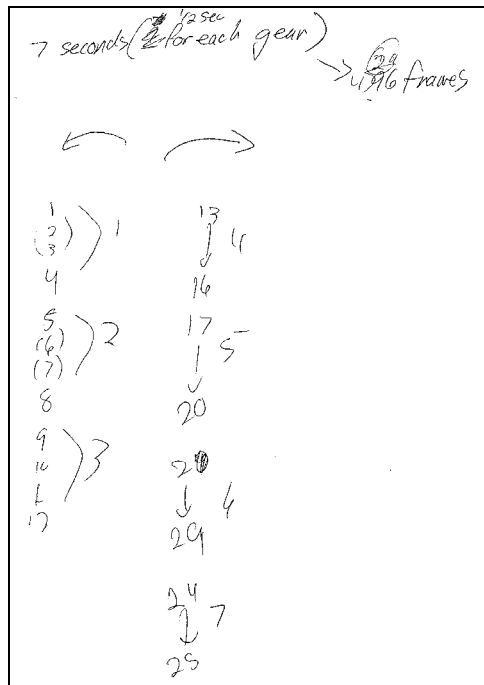 7 seconds (1/2 sec for each gear)
→ frames
1
2
(3) 1
4
5
(6) 2
(7)
8
9
10
1 3
12
13
↓ 4
16
17
↓ 5
20
20
↓ 6
24
↕ 7
25